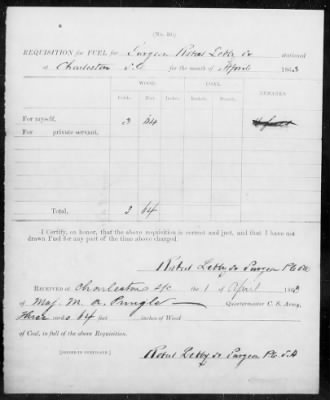 (No. 20.)
REQUISITION FOR FUEL for Surgeon Robert Lebby Sr stationed
at Charleston S.C. for the month of April 1863
WOOD. COAL. REMARKS.
Cords. Feet Inches. Bushels.
For myself. 3 64
For private servant.
Total, 3 64
I Certify, on honor, that the above requisition is correct and just, and that I have not
drawn Fuel for any part of the time above charged.
Robert Lebby Sr Surgeon
RECEIVED at Charleston S.C. the 1 of April 1863
of Maj. M. A. Pringle Quartermaster C. S. Army,
Three cords 64 feet inches of Wood
of Coal, in full of the above Requisition.
[SIGNED IN DUPLICATE.] Robert Lebby Sr Surgeon